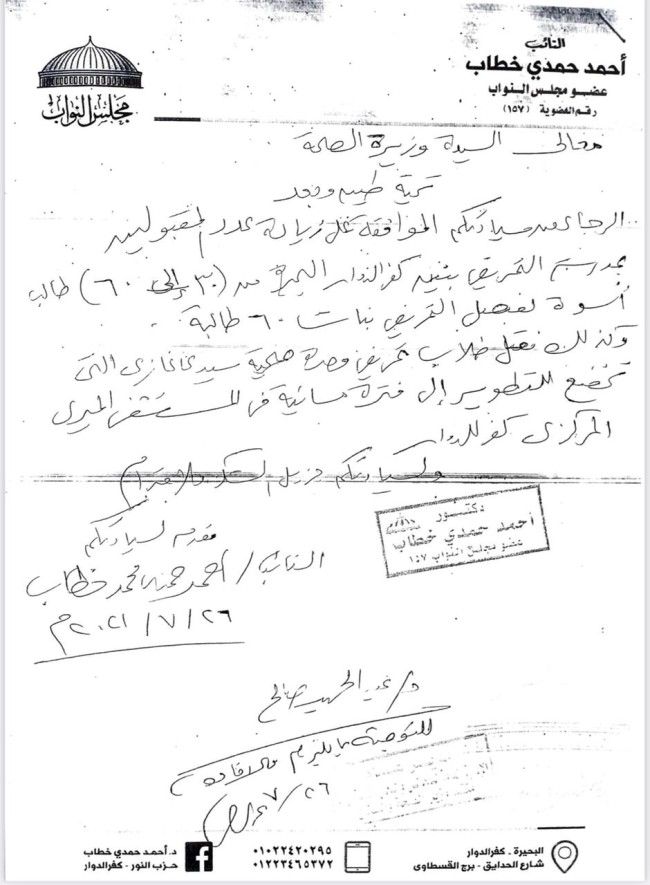 النائب
أحمد حمدي خطاب
عضو مجلس النواب
رقم العضوية (١٥٧)
مجلس النواب
معالى السيدة وزيرة الصحة
تحية طيبة وبعد
الرجاء من سيادتكم الموافقة على زيادة عدد المقبولين
بمدرسة التمريض بنين كفر الدوار البحيرة من (٣٠ إلى ٦٠) طالب
أسوة لفصل التمريض بنات ٦٠ طالبة .
وكذلك نقل طلاب تمريض وحدة صحية سيدى غازى التى
تخضع للتطوير إلى فترة مسائية فى المستشفى الميرى
المركزى كفر الدوار
ولسيادتكم جزيل الشكر والاحترام
دكتور
أحمد حمدي خطاب
عضو مجلس النواب ١٥٧
مقدمه لسيادتكم
النائب / أحمد حمدى محمد خطاب
٢٠٢١/٧/٢٦م
للتوجيه بما يلزم والافادة
٧/٢٦
البحيرة . كفرالدوار
شارع الحدايق - برج القسطاوى
٠١٠٢٢٤٢٠٢٩٥
٠١٢٢٣٤٦٥٣٧٢
د.أحمد حمدي خطاب
حزب النور - كفرالدوار